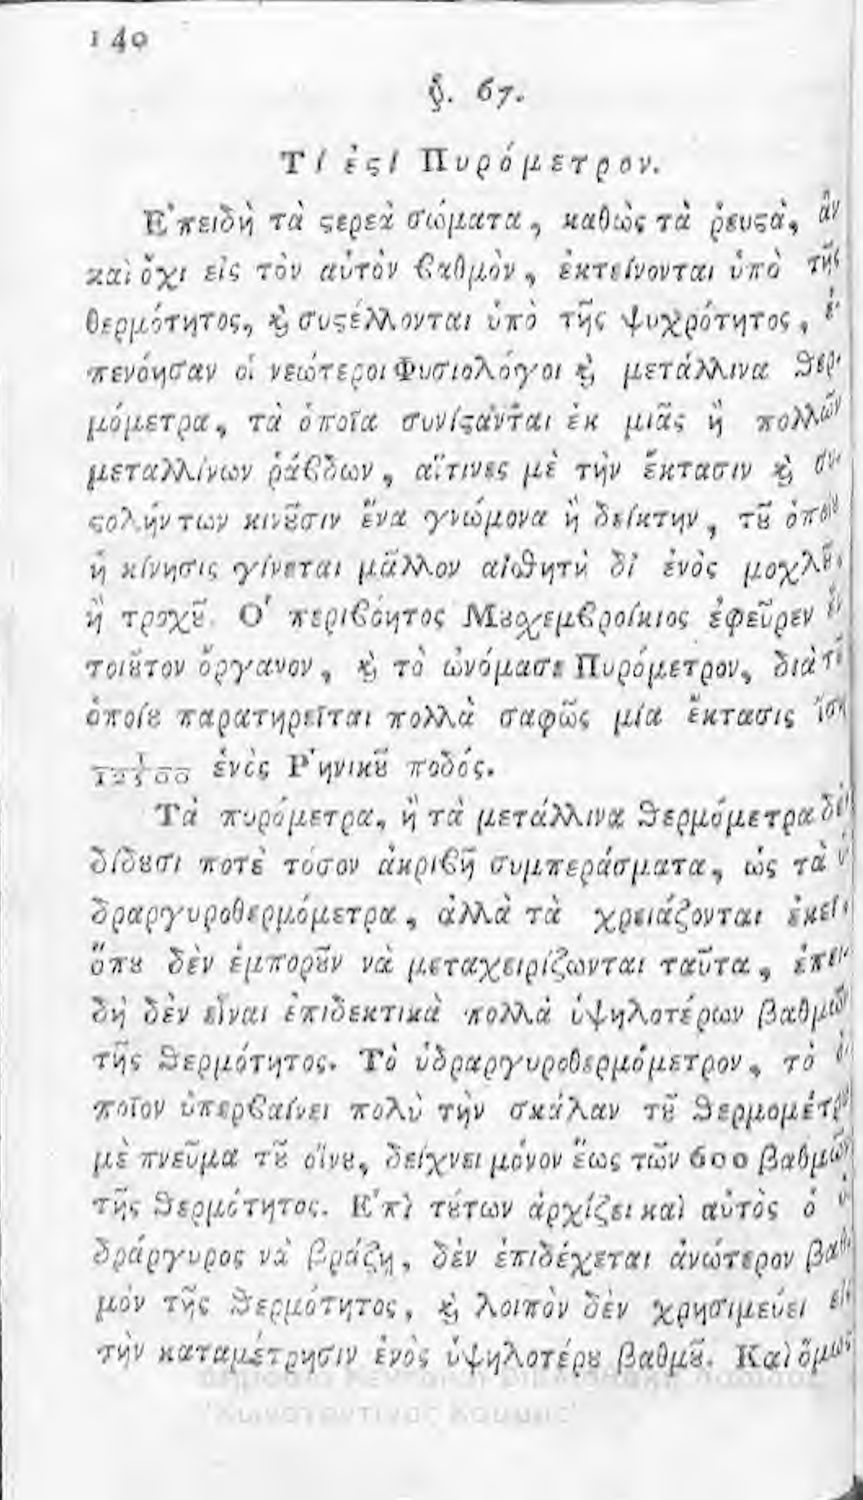 140
§. 67.
Τί ἐϛὶ Πυρόμετρον.
Ἐπειδὴ τὰ ϛερεὰ σώματα, καθὼς τὰ ῥευϛά, ἂν
καὶ ὄχι εἰς τὸν αὐτὸν ϐαθμὸν, ἐκτείνονται ὑπὸ τῆς
θερμότητος, ϗ συϛέλλονται ὑπὸ τῆς ψυχρότητος, ἐ-
πενόησαν οἱ νεώτεροι Φυσιολόγοι ϗ μετάλλινα ϑερ-
μόμετρα, τὰ ὁποῖα συνίϛανται ἐκ μιᾶς ἢ πολλῶν
μεταλλίνων ῥάϐδων, αἵτινες μὲ τὴν ἔκτασιν ϗ συ-
ϛολήν των κινȣ͂σιν ἕνα γνώμονα ἢ δείκτην, τȣ͂ ὁποίȣ
ἡ κίνησις γίνεται μᾶλλον αἰσθητὴ δἰ ἑνὸς μοχλȣ͂,
ἢ τροχȣ͂. Ὁ περιϐόητος Μȣσχεμϐροίκιος ἐφεῦρεν ἓν
τοιȣ͂τον ὄργανον, ϗ τὸ ὠνόμασε Πυρόμετρον, διὰ τȣ͂
ὁποίȣ παρατηρεῖται πολλὰ σαφῶς μία ἔκτασις ἴση
1/12500 ἑνὸς Ῥηνικȣ͂ ποδός.
Τὰ πυρόμετρα, ἢ τὰ μετάλλινα ϑερμόμετρα δὲν
δίδȣσι ποτὲ τόσον ἀκριϐῆ συμπεράσματα, ὡς τὰ ὑ-
δραργυροθερμόμετρα, ἀλλὰ τὰ χρειάζονται ἐκεῖ,
ὅπȣ δὲν ἐμπορȣ͂ν νὰ μεταχειρίζωνται ταῦτα, ἐπει-
δὴ δὲν εἶναι ἐπιδεκτικὰ πολλὰ ὑψηλοτέρων βαθμῶν
τῆς ϑερμότητος. Τὸ ὑδραργυροθερμόμετρον, τὸ ὁ-
ποῖον ὑπερϐαίνει πολὺ τὴν σκάλαν τȣ͂ ϑερμομέτρȣ
μὲ πνεῦμα τȣ͂ οἴνȣ, δείχνει μόνον ἕως τῶν 600 βαθμῶν
τῆς ϑερμότητος. Ἐπὶ τȣ́των ἀρχίζει καὶ αὐτὸς ὁ ὑ-
δράργυρος νὰ βράζῃ, δὲν ἐπιδέχεται ἀνώτερον βαθ-
μὸν τῆς ϑερμότητος, ϗ λοιπὸν δὲν χρησιμεύει εἰς
τὴν καταμέτρησιν ἑνὸς ὑψηλοτέρȣ βαθμȣ͂. Καὶ ὅμως